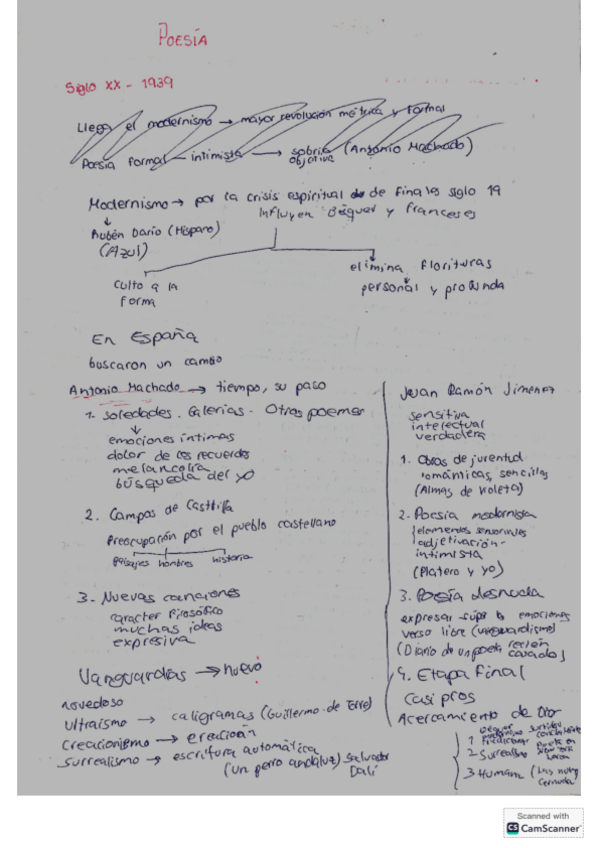 POESÍA
Siglo XX - 1939
Llega el modernismo → mayor revolución métrica y formal
Poesía formal — intimista → sobria (Antonio Machado)
objetiva
Modernismo → por la crisis espiritual de de finales siglo 19
influyen Bécquer y franceses
Rubén Darío (Hispano)
(Azul)
culto a la
forma
elimina florituras
personal y profunda
En España
buscaron un cambio
Antonio Machado → tiempo, su paso
1. Soledades. Galerías. Otros poemas
emociones íntimas
dolor de los recuerdos
melancolía
búsqueda del yo
2. Campos de Castilla
Preocupación por el pueblo castellano
paisajes hombres historia
3. Nuevas canciones
caracter filosófico
muchas ideas
expresiva
Vanguardias → nuevo
novedoso
Ultraísmo → caligramas (Guillermo de Torre)
Creacionismo → creación
surrealismo → escritura automática
(Un perro andaluz) Salvador
Dalí
Juan Ramón Jimenez
sensitiva
intelectual
verdadera
1. Obras de juventud
románticas, sencillas
(Almas de violeta)
2. Poesía modernista
elementos sensoriales
adjetivación
intimista
(Platero y yo)
3. Poesía desnuda
expresar emociones
verso libre (vanguardismo)
(Diario de un poeta recién
casado)
4. Etapa final
Casi pros
Acercamiento de Dior
1
2 Surrealismo
3 Humana
Scanned with
CS CamScanner